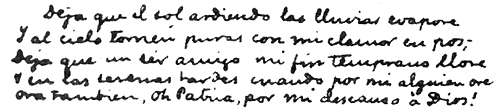 Deja que el sol ardiendo las lluvias evapore
Y al cielo tornen puras con mi clamor en pos,
Deja que un ser amigo mi fin temprano llore
Y en las serenas tardes cuando por mi alguien ore
Ora tambien, oh Patria, por mi descanso à Dios!